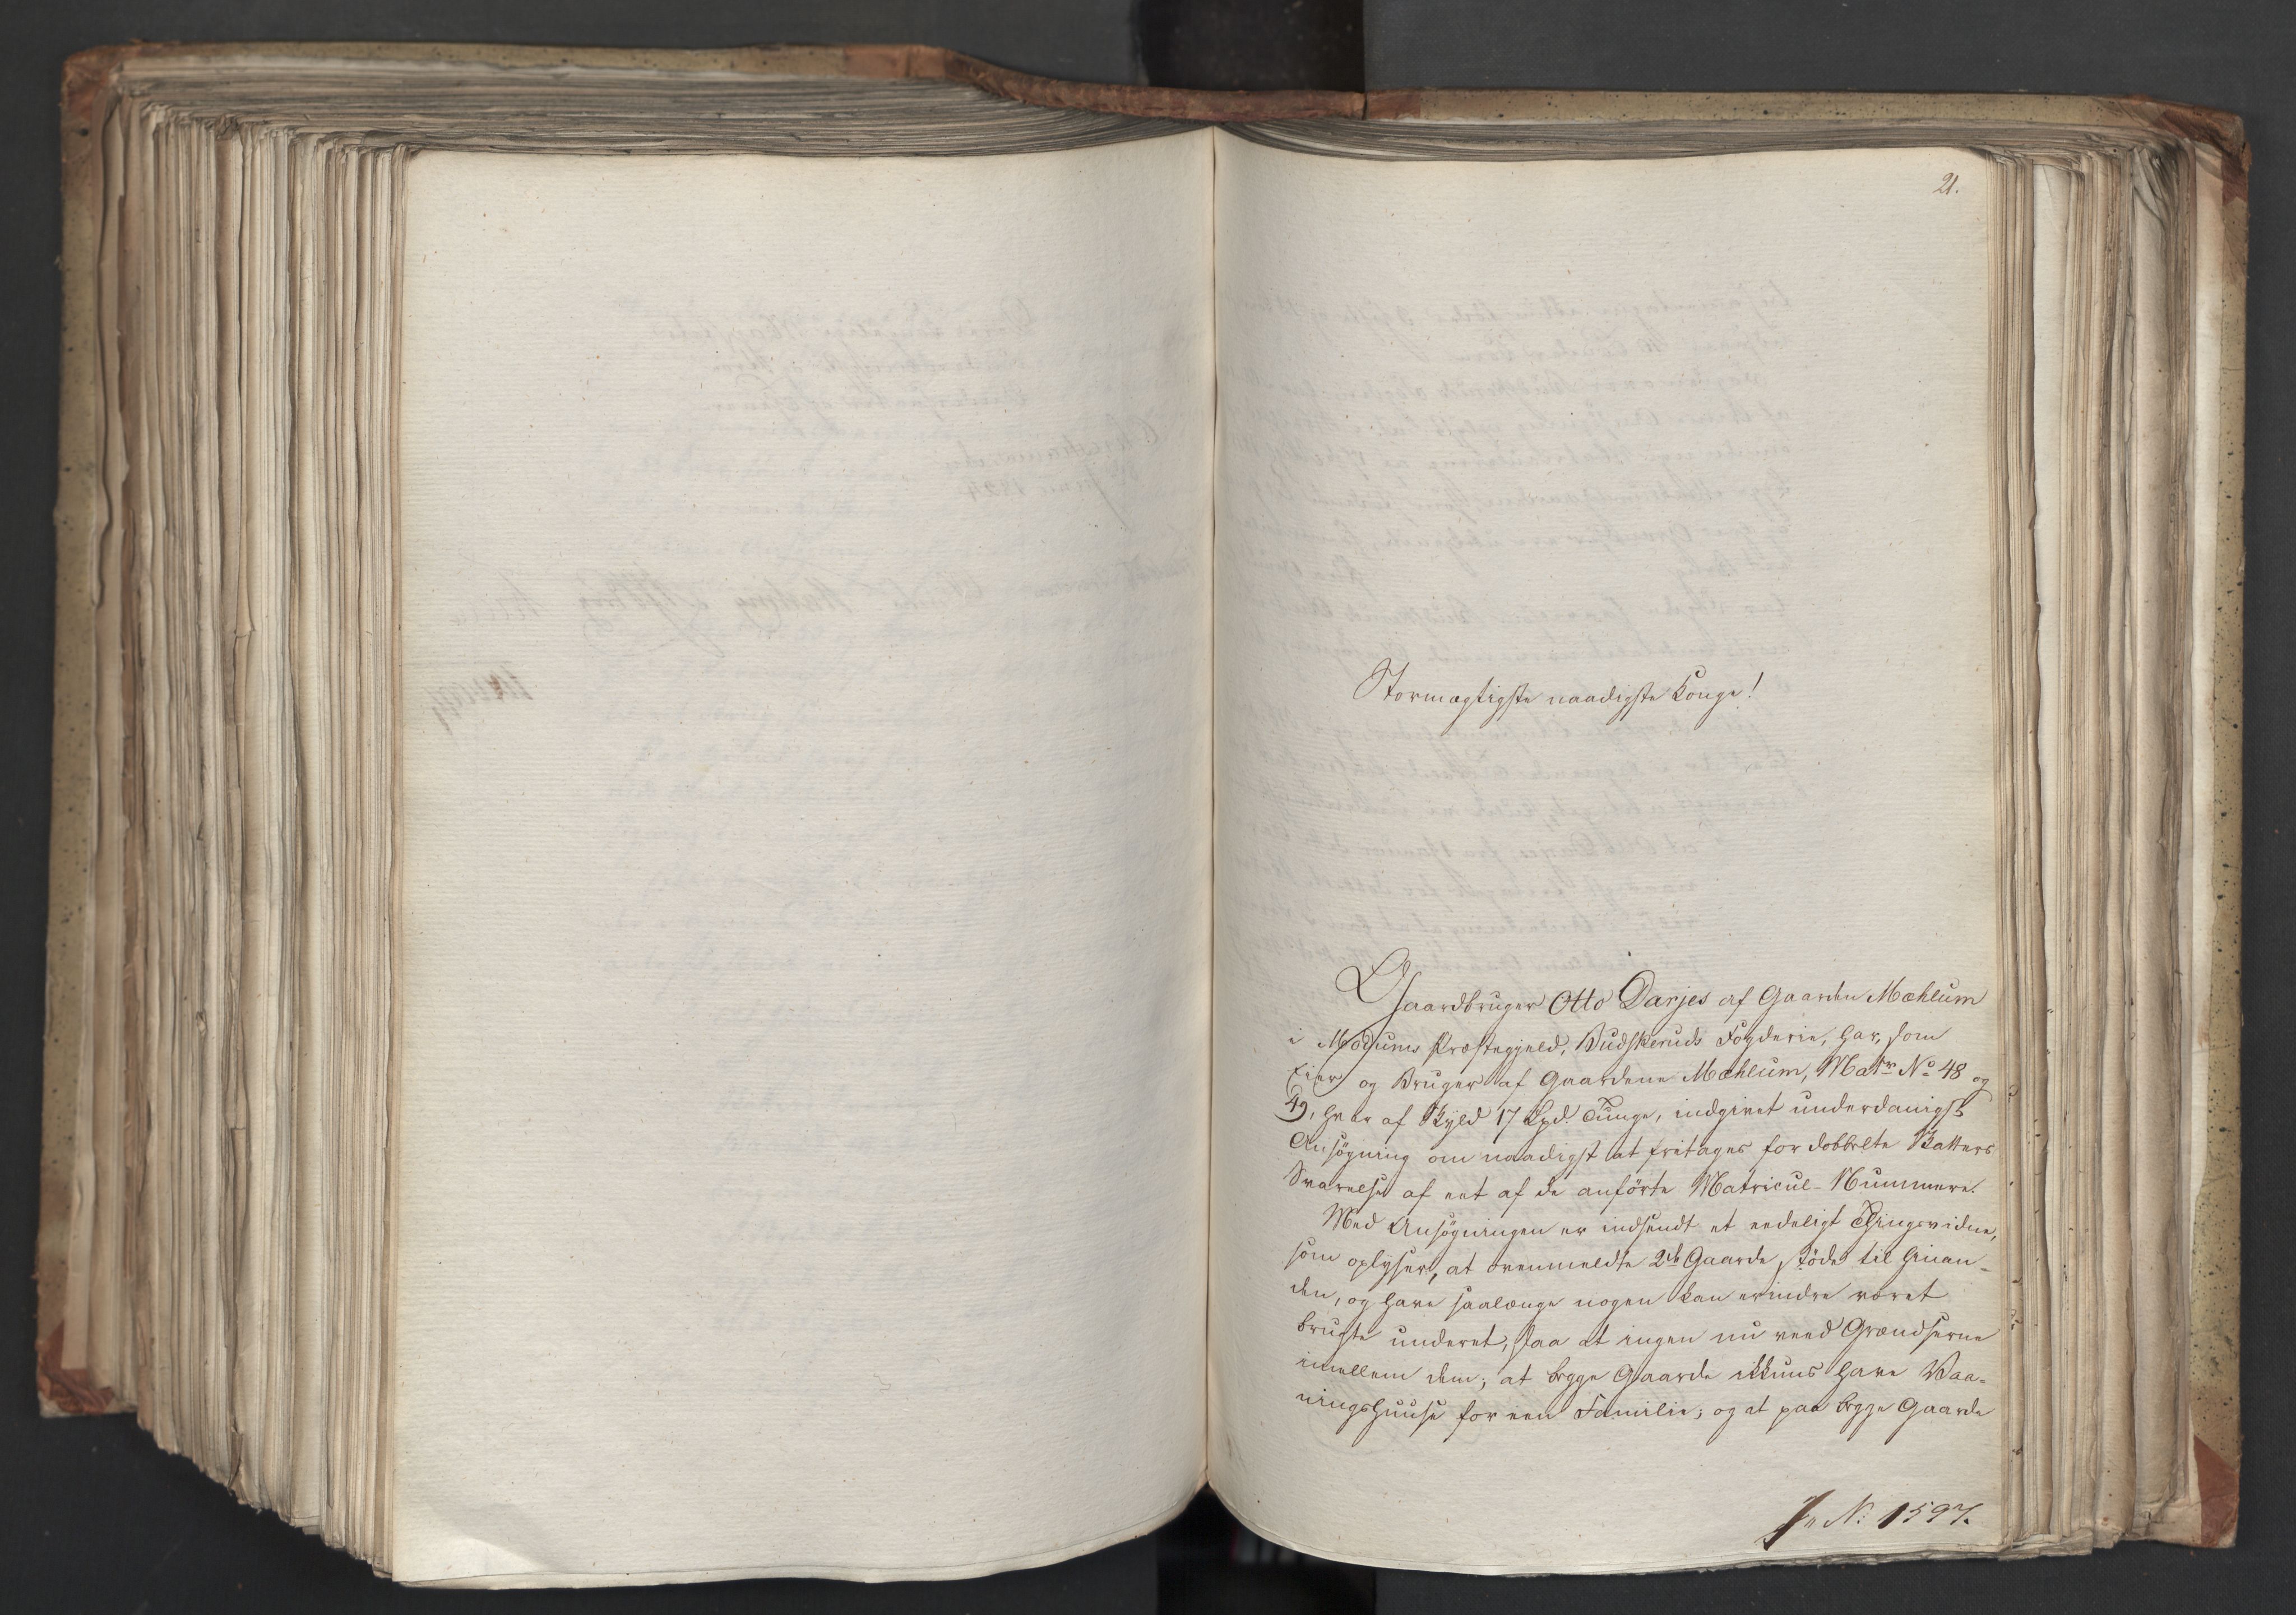 21.
Stormægtigste naadigste Konge!
Gaardbruger Otto Darjes af Gaarden Mæhlum
i Modums Præstegjeld, Budskeruds Fogderie, har, som
Eier og Bruger af Gaardene Mæhlum, Matr. No 48 og
49, hver af Skyld 17 Lpd. Tunge, indgivet underdanigst
Ansögning om naadigst at fritages for dobbelte Skatters
Svarelse af eet af de anförte Matricul-Nummere.
Med Ansögningen er indsendt et eedeligt Thingsvidne,
som oplyser, at ovenmeldte 2de Gaarde støde til hinan-
den, og have saalænge nogen kan erindre været
brugte undereet, saa at ingen nu veed Grændserne
imellem dem; at begge Gaarde ikkuns have Vaa-
ningshuuse for een Familie; og at paa begge Gaarde
Jn No: 1597.